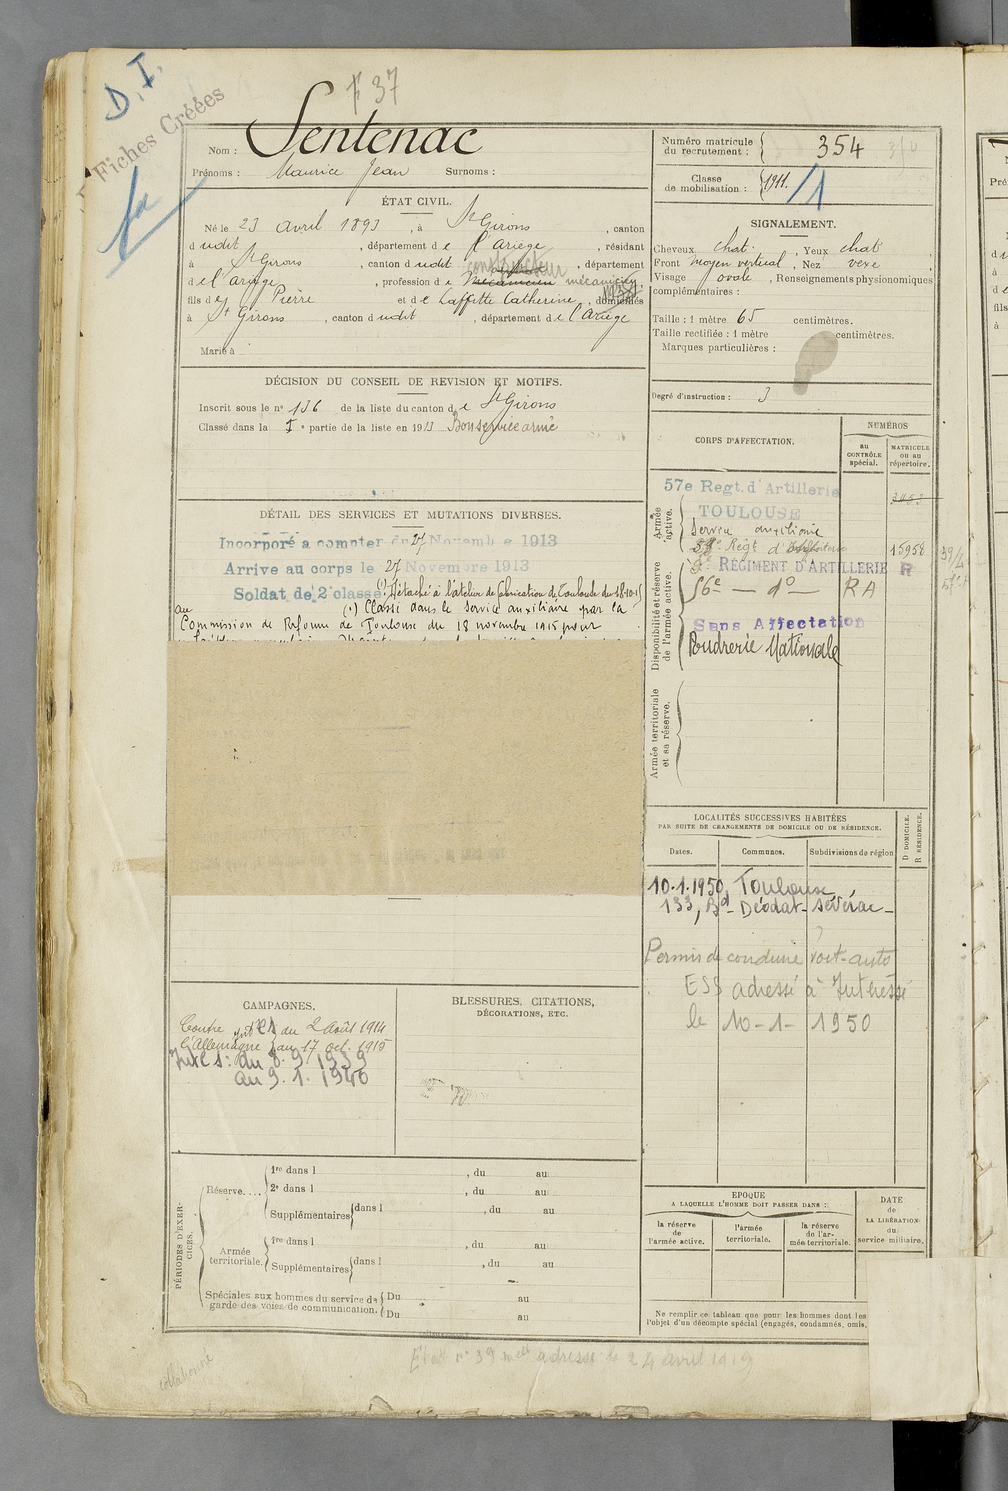 D.I.
F 37
Fiches Créées
Nom : Sentenac
Prénoms : Maurice Jean Surnoms :
Numéro matricule du recrutement : 354
Classe de mobilisation : 1911. /1
ÉTAT CIVIL.
Né le 23 avril 1893, à St Girons, canton
dudit St Girons, département de l'Ariège, résidant
à St Girons, canton dudit, département
de l'Ariège, profession de mécanicien mécanicien
fils de Pierre et de Laffitte Catherine, domiciliés
à St Girons, canton dudit, département de l'Ariège
Marié à
SIGNALEMENT.
Cheveux chat., Yeux chat
Front moyen vertical, Nez vexe
Visage ovale, Renseignements physionomiques
complémentaires :
Taille : 1 mètre 65 centimètres.
Taille rectifiée : 1 mètre centimètres.
Marques particulières :
Degré d'instruction : 3
DÉCISION DU CONSEIL DE REVISION ET MOTIFS.
Inscrit sous le nº 136 de la liste du canton de St Girons
Classé dans la 1e partie de la liste en 1913 Bon service armé
DÉTAIL DES SERVICES ET MUTATIONS DIVERSES.
Incorporé a compter du 27 Novembre 1913
Arrive au corps le 27 Novembre 1913
Soldat de 2 classe. (1) Détaché à l'atelier de fabrication de Toulouse du 18-10-15
au (1) Classé dans le Service auxiliaire par la
Commission de Réforme de Toulouse du 18 novembre 1915 pour
CORPS D'AFFECTATION.
NUMÉROS
au CONTRÔLE spécial.
MATRICULE ou au répertoire.
Armée active.
57e Regt. d'Artillerie
TOULOUSE
Service auxiliaire
Régt d'
15958
Disponibilité et réserve de l'armée active.
REGIMENT D'ARTILLERIE R
56e — do — RA
Sans Affectation
Poudrerie Nationale
Armée territoriale et sa réserve.
LOCALITÉS SUCCESSIVES HABITÉES
PAR SUITE DE CHANGEMENTS DE DOMICILE OU DE RÉSIDENCE.
Dates. Communes. Subdivisions de région
D DOMICILE.
R RÉSIDENCE.
10.1.1950, Toulouse
133, Bd - Déodat - Séverac -
Permis de conduire voit-auto
ESS adressé à Intéressé
le 10-1-1950
CAMPAGNES.
Contre du 2 août 1914
l'Allemagne au 17 oct. 1915
du 8.9.1939
au 9.1.1940
BLESSURES, CITATIONS,
DÉCORATIONS, ETC.
PÉRIODES D'EXERCICES.
Réserve....
1re dans l , du au
2e dans l , du au
Supplémentaires dans l , du au
Armée territoriale.
1re dans l , du au
Supplémentaires dans l , du au
Spéciales aux hommes du service de garde des voies de communication.
Du au
Du au
EPOQUE
A LAQUELLE L'HOMME DOIT PASSER DANS :
la réserve de l'armée active.
l'armée territoriale.
la réserve de l'armée territoriale.
DATE de LA LIBÉRATION du service militaire.
Ne remplir ce tableau que pour les hommes dont les
l'objet d'un décompte spécial (engagés, condamnés, omis,
Etat nº 39 adressé le 24 avril 1919
collationné